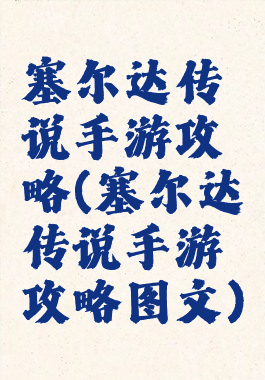 塞尔达传
说手游攻
略(塞尔达
传说手游
攻略图文)